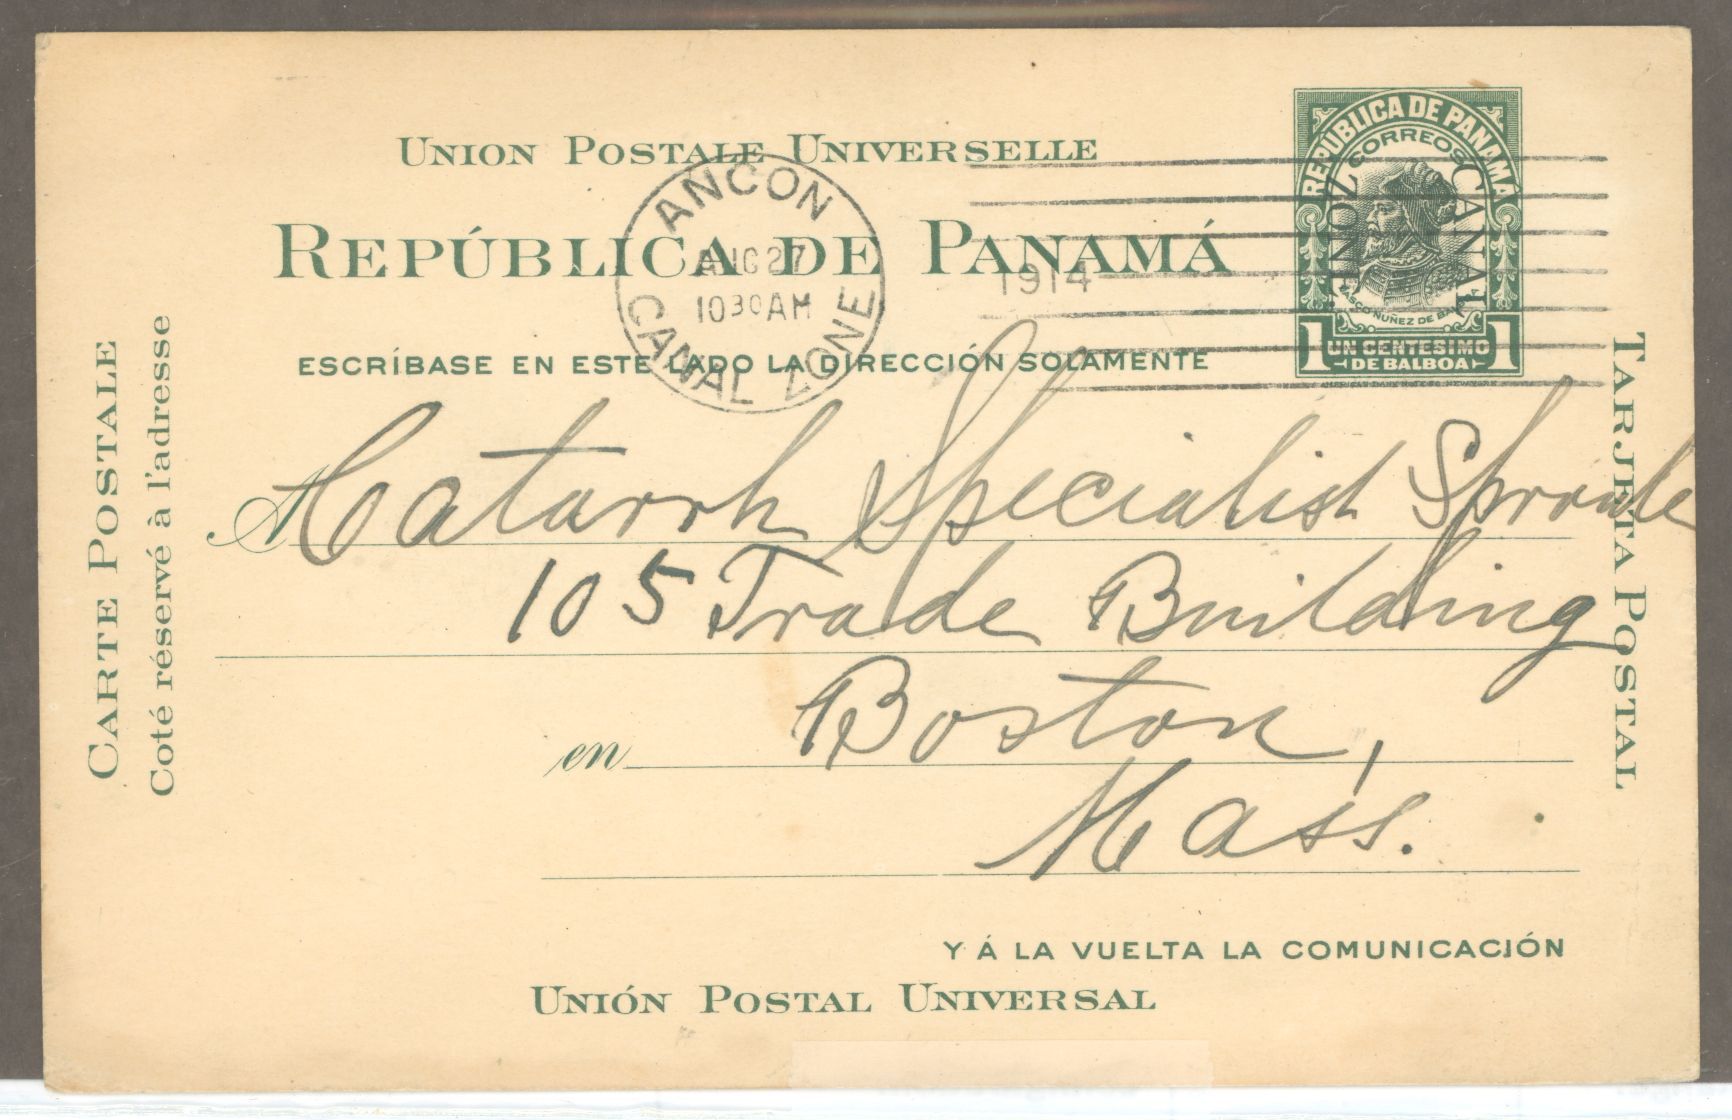 UNION POSTALE UNIVERSELLE
REPÚBLICA DE PANAMÁ
ESCRÍBASE EN ESTE LADO LA DIRECCIÓN SOLAMENTE
ANCON
AUG 27
10 30 AM
CANAL ZONE
1914
REPÚBLICA DE PANAMÁ
CORREOS
CANAL
ZONE
VASCO NUÑEZ DE BALBOA
1 UN CENTESIMO 1
DE BALBOA
AMERICAN BANK NOTE CO. NEW YORK
CARTE POSTALE
Coté réservé à l'adresse
TARJETA POSTAL
A Catarrh Specialist Sproule
105 Trade Building
en Boston,
Mass.
Y Á LA VUELTA LA COMUNICACIÓN
UNIÓN POSTAL UNIVERSAL